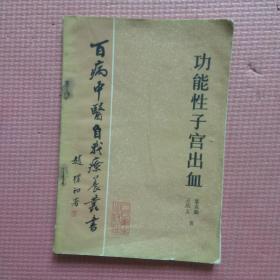 功能性子宫出血
百病中医自我疗养丛书
赵朴初署
著